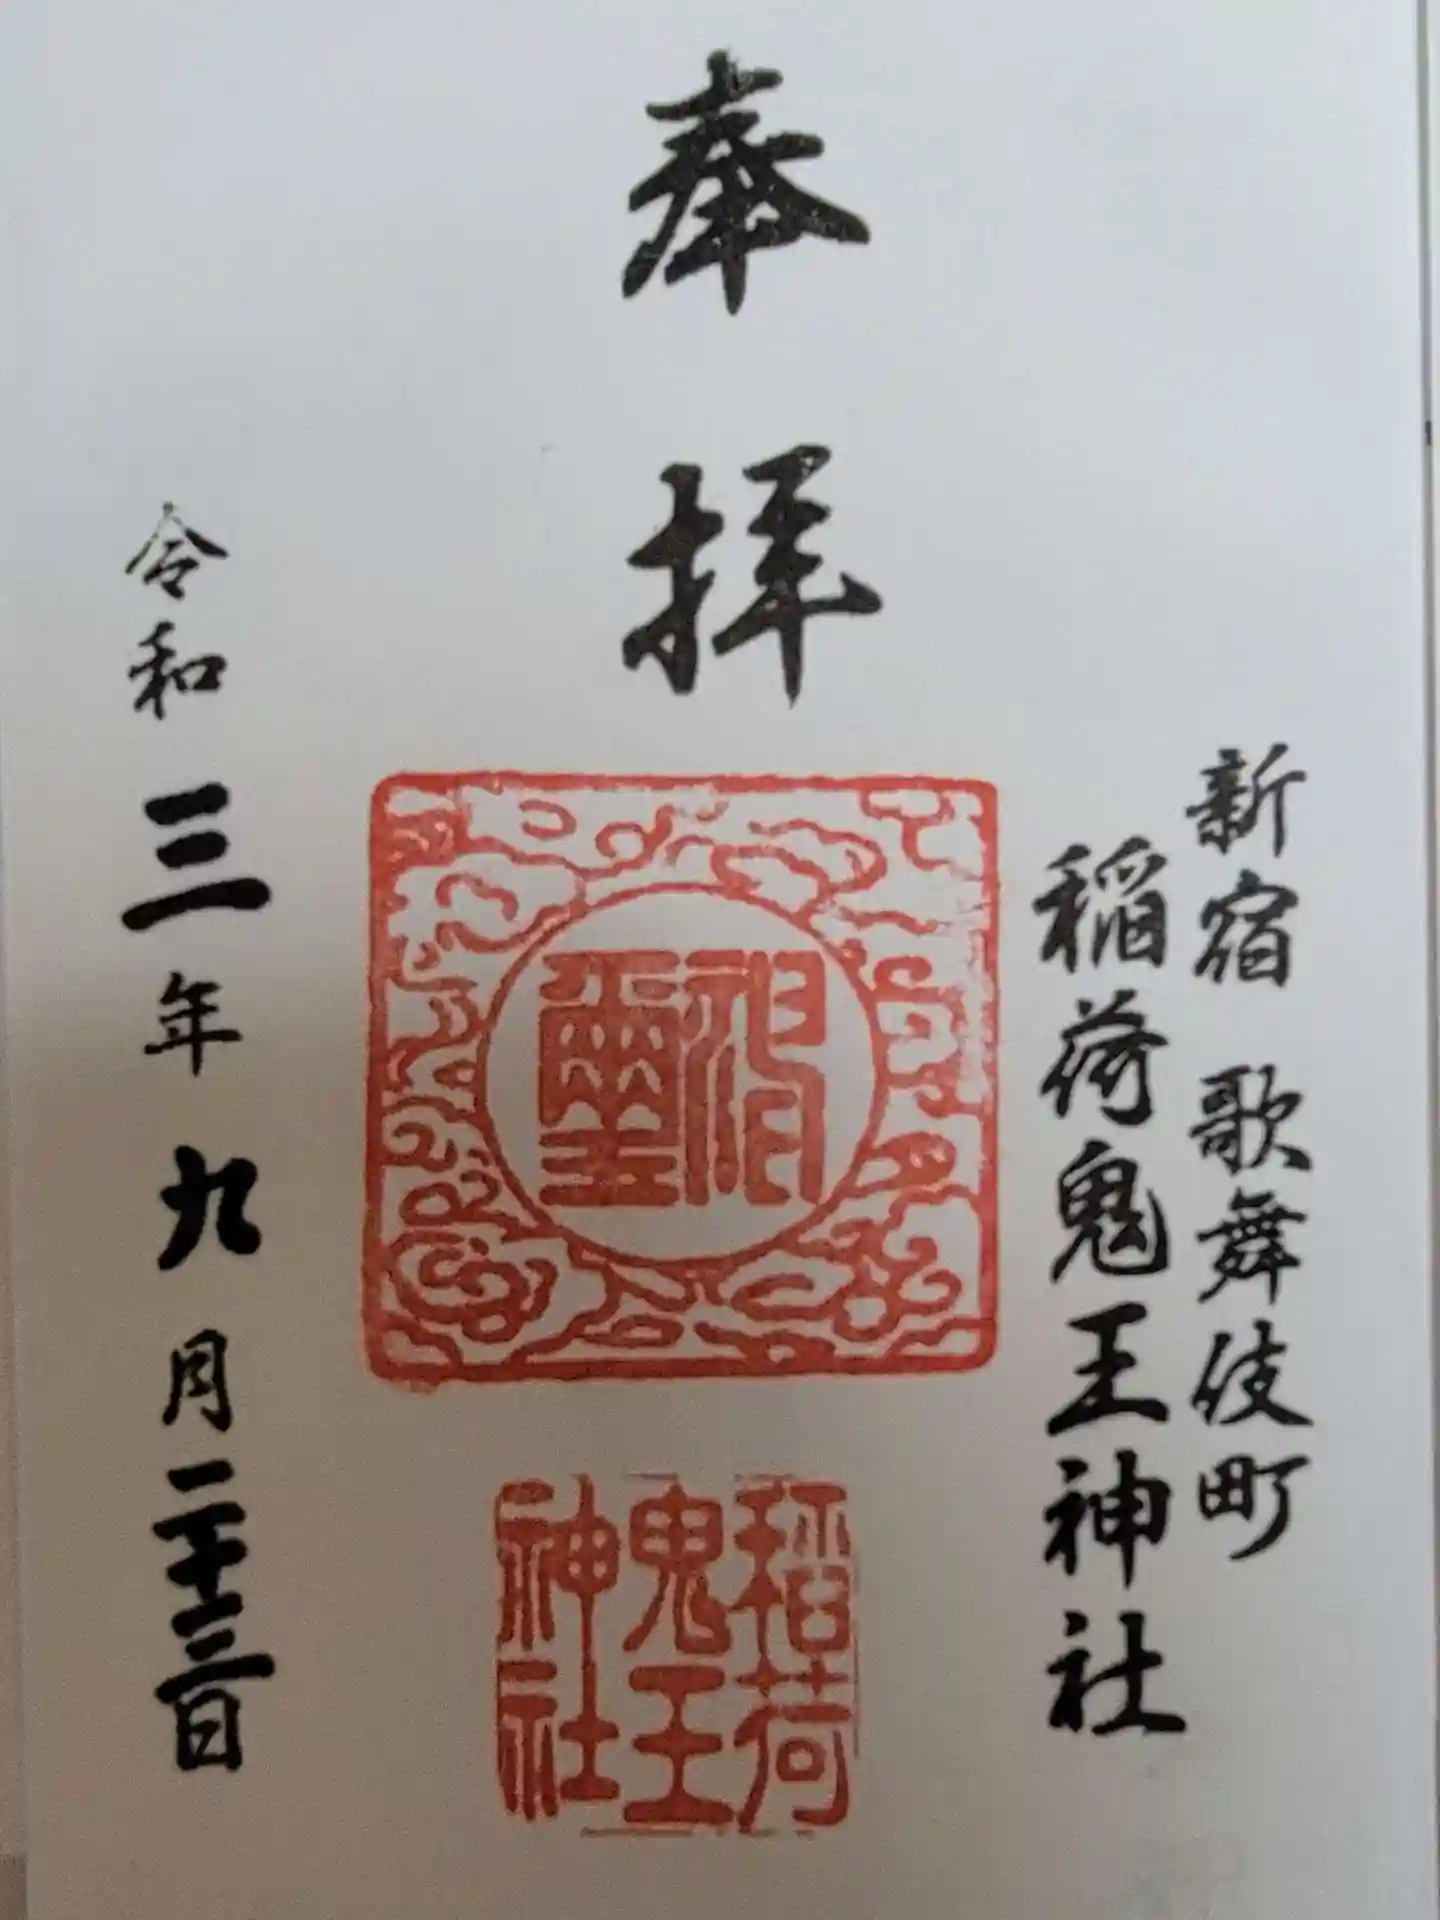 新宿 歌舞伎町
稲荷鬼王神社
奉拝
神璽
稲荷
鬼王
神社
令和三年九月二十三日